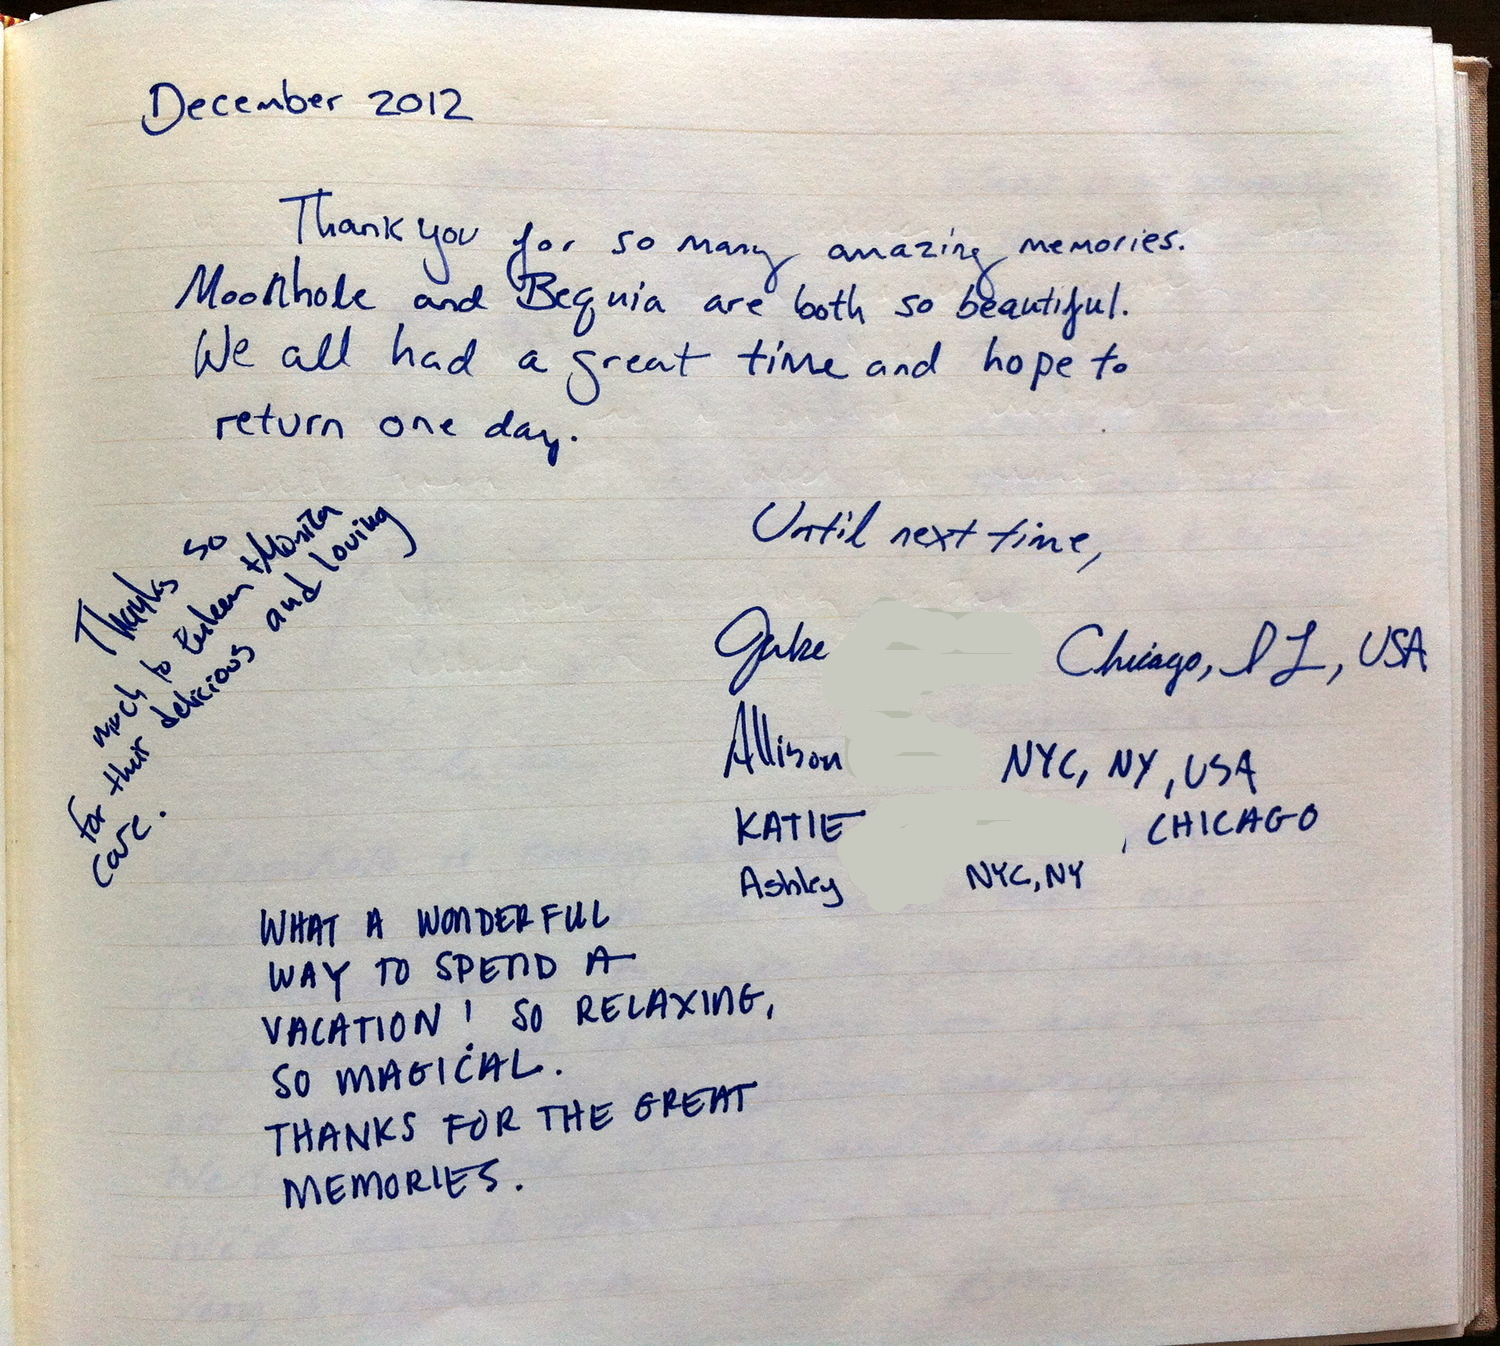 December 2012
Thank you for so many amazing memories.
Moonhole and Bequia are both so beautiful.
We all had a great time and hope to
return one day.
Until next time,
Jake Chicago, IL, USA
Allison NYC, NY, USA
KATIE , CHICAGO
Ashley NYC, NY
Thanks so
much to + Monita
for their delicious and loving
care.
WHAT A WONDERFUL
WAY TO SPEND A
VACATION! SO RELAXING,
SO MAGICAL.
THANKS FOR THE GREAT
MEMORIES.